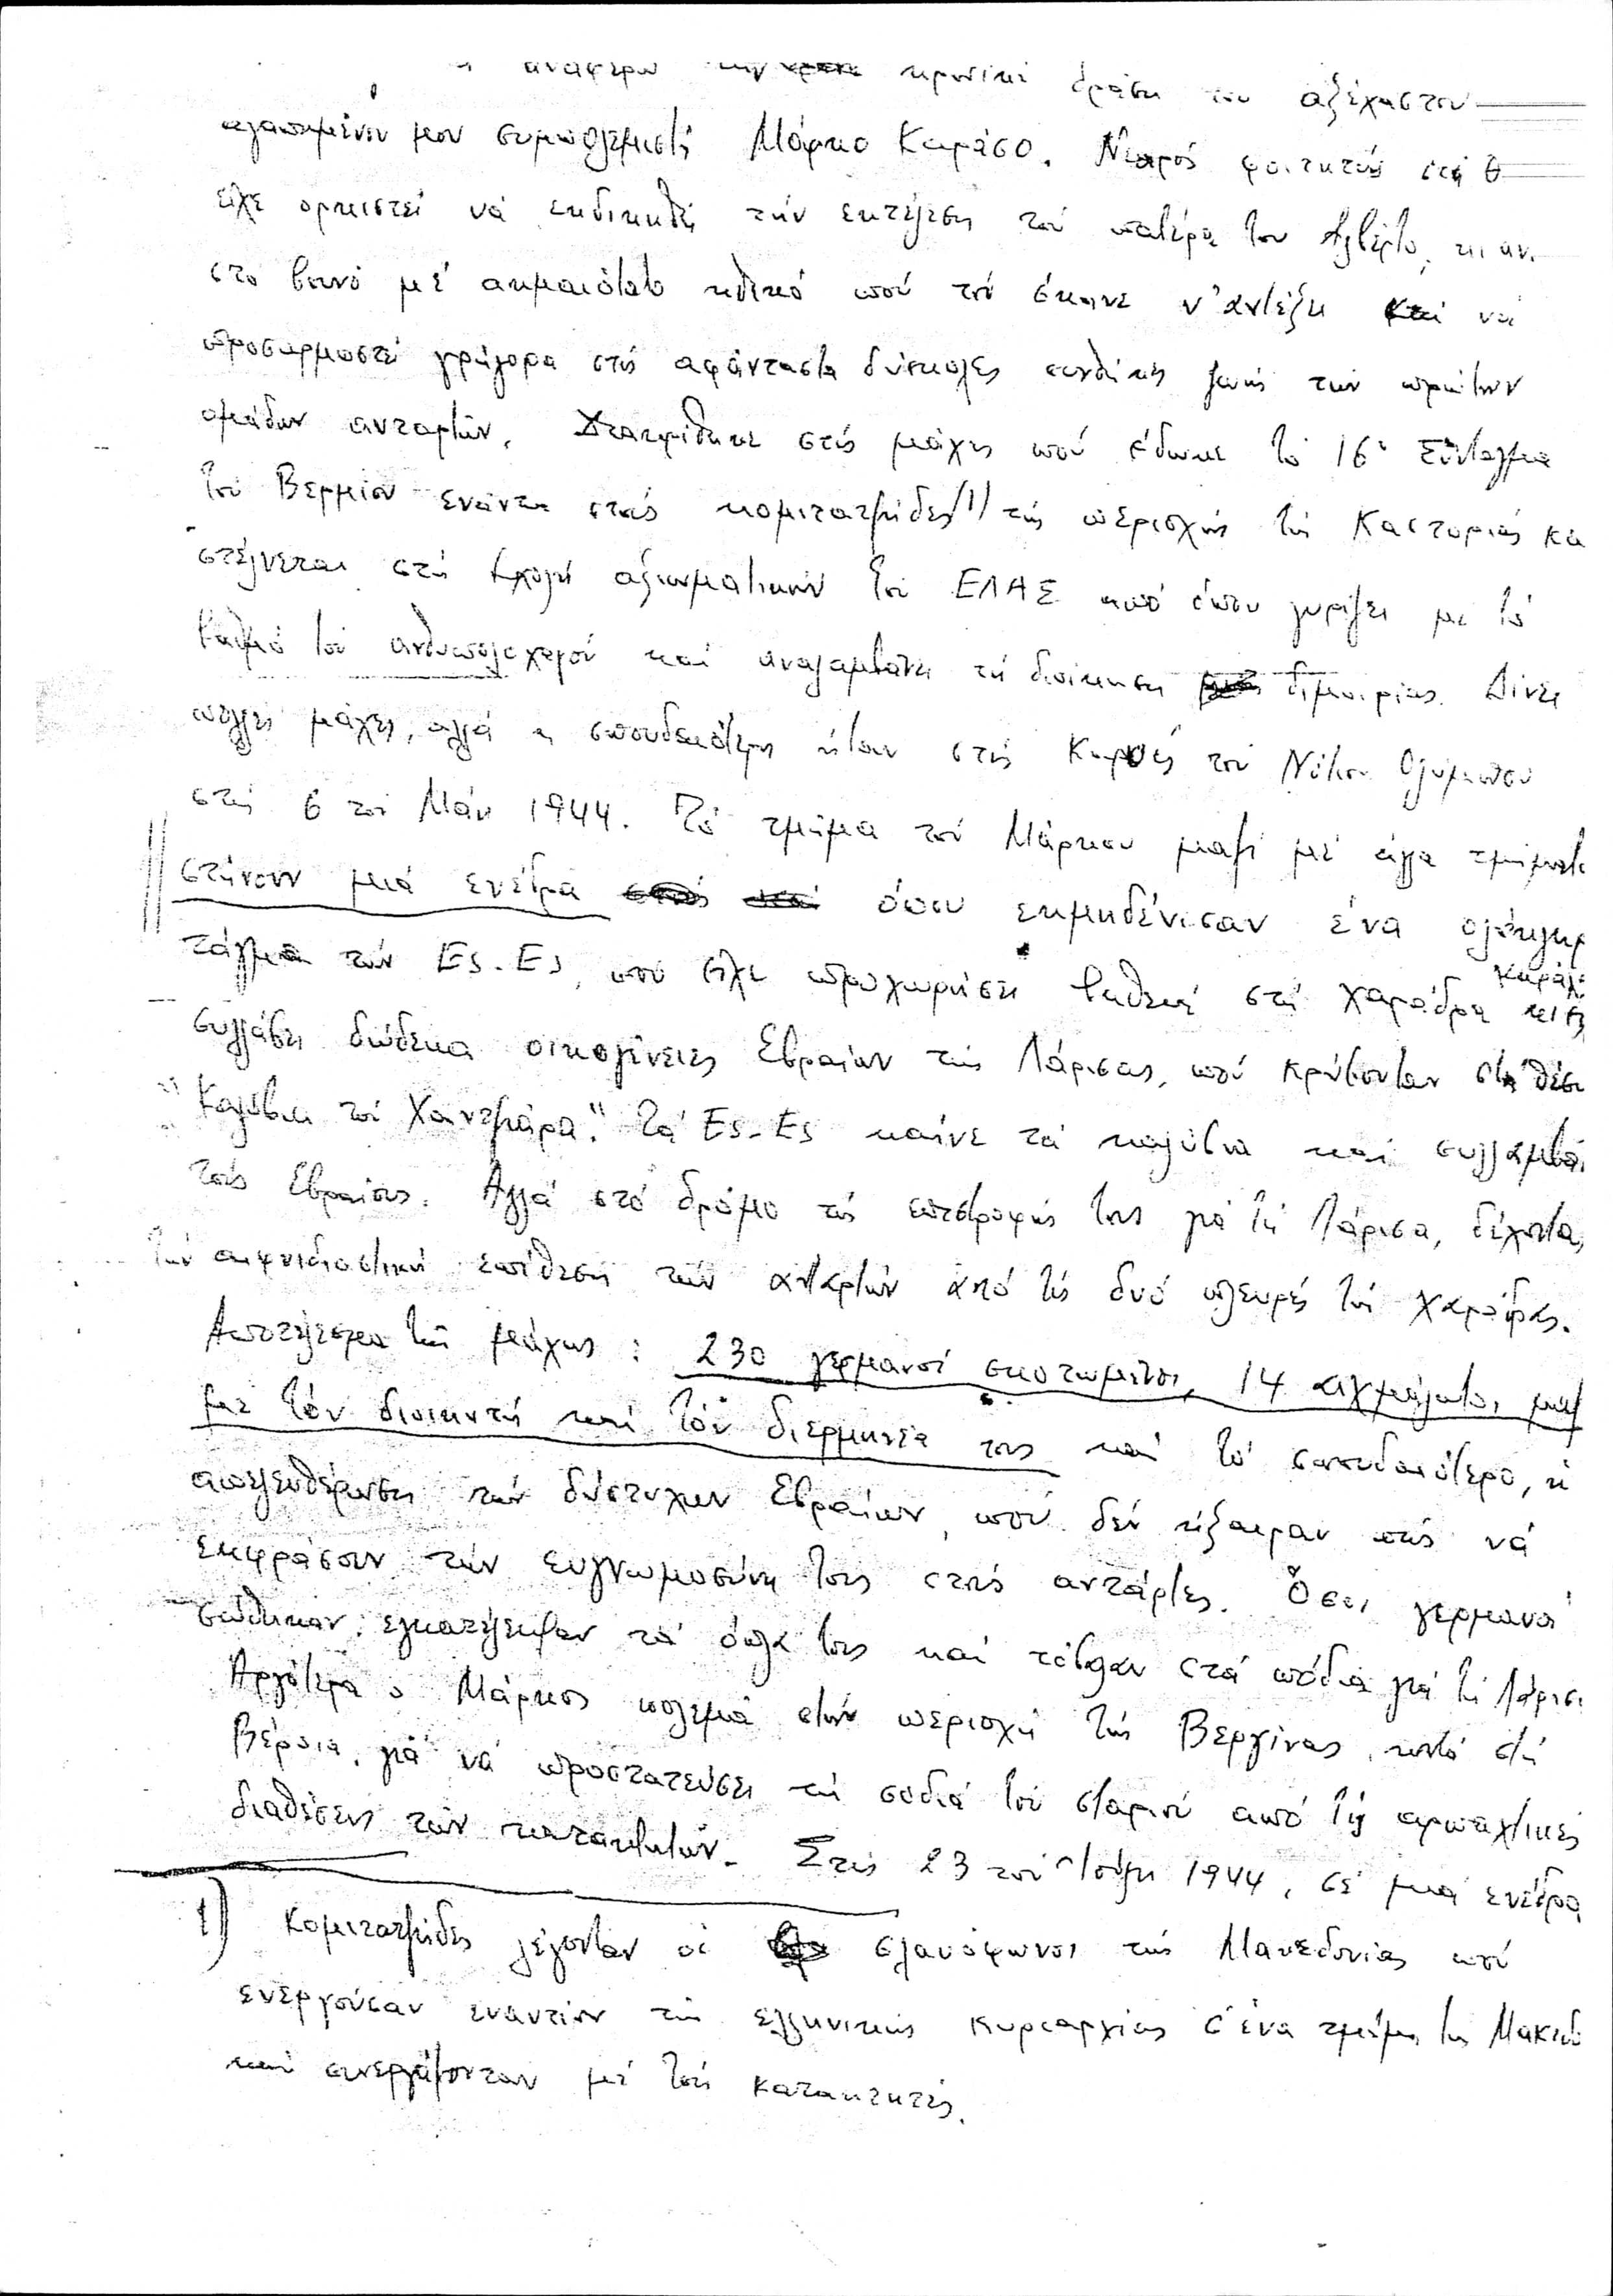 αναφέρω την ηρωική δράση του αξέχαστου
αγαπημένου μου συμπολεμιστή Μάρκο Καράσο. Νεαρός φοιτητής στη Θ
είχε ορκιστεί νά εκδικηθή τήν εκτέλεση τού πατέρα του Αλβέρτο,
στο βουνό μέ ακμαιότατο ηθικό πού τού έκανε ν' αντέξη καί νά
προσαρμοστεί γρήγορα στίς αφάνταστα δύσκολες συνθήκες ζωής τών πρώτων
ομάδων ανταρτών. Διακρίθηκε στίς μάχες πού έδωκε τό 16ο Σύνταγμα
τού Βερμίου ενάντια στούς κομιτατζήδες/1/ τής περιοχής τής Καστοριάς κα
στέλνεται στή Σχολή αξιωματικών τού ΕΛΑΣ από όπου γυρίζει με τό
βαθμό τού ανθυπολοχαγού καί αναλαμβάνει τή διοίκηση διμοιρίας. Δίνει
πολλές μάχες, αλλά η σπουδαιότερη ήταν στίς Καρυές τού Νότιου Ολύμπου
στίς 6 τού Μάη 1944. Τό τμήμα τού Μάρκου μαζί μέ άλλα τμήματ
στήνουν μιά ενέδρα όπου εκμηδένισαν ένα ολόκληρ
τάγμα τών Ες-Ες, πού είχε προχωρήσει βαθειά στή χαράδρα
συλλάβει δώδεκα οικογένειες Εβραίων τής Λάρισας, πού κρύβονταν στη θέση
"Καλύβια τού Χαντζάρα". Τά Ες-Ες καίνε τά καλύβια καί συλλαμβά
τούς Εβραίους. Αλλά στό δρόμο τής επιστροφής τους γιά τή Λάρισα, δέχονται
τήν αιφνιδιαστική επίθεση τών ανταρτών από τίς δυό πλευρές τής χαράδρας.
Αποτέλεσμα τής μάχης : 230 γερμανοί σκοτωμένοι, 14 αιχμάλωτοι, μαζ
με τόν διοικητή καί τόν διερμηνέα τους καί τό σπουδαιότερο, η
απελευθέρωση τών δύστυχων Εβραίων, πού δέν ήξαιραν πώς νά
εκφράσουν τήν ευγνωμοσύνη τους στούς αντάρτες. Όσοι γερμανοί
σώθηκαν, εγκατέλειψαν τά όπλα τους καί τόβαλαν στά πόδια γιά τή Λάρισ
Αργότερα ο Μάρκος πολεμά στήν περιοχή τής Βεργίνας, κοντά στή
Βέροια, γιά νά προστατεύσει τή σοδιά τού σταριού από τίς αρπαχτικές
διαθέσεις τών κατακτητών. Στίς 23 τού Ιούλη 1944, σέ μιά ενέδρα
1) Κομιτατζήδες λέγονταν οί σλαυόφωνοι τής Μακεδονίας πού
ενεργούσαν εναντίον τής ελληνικής κυριαρχίας σ' ένα τμήμα της Μακεδο
καί συνεργάζονταν μέ τούς κατακτητές.